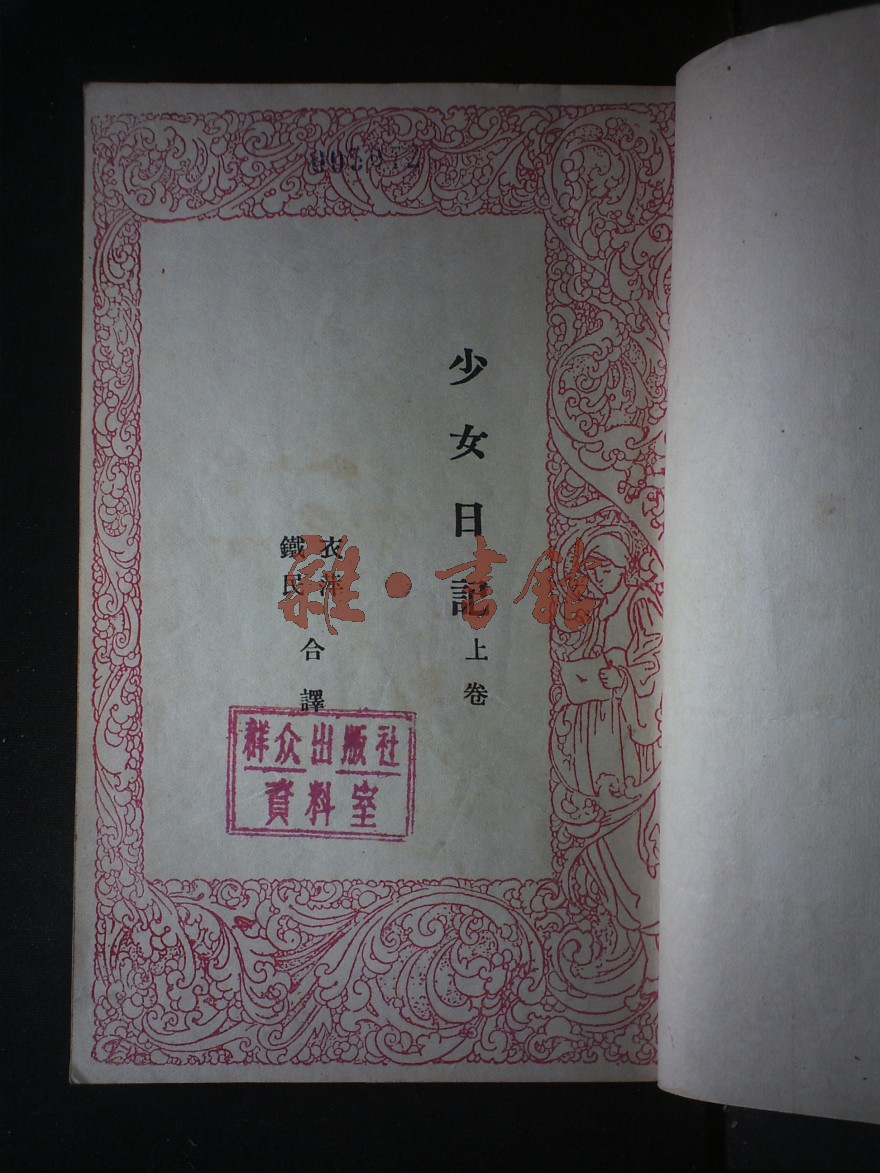 少女日記
上卷
衣萍
鐵民
合譯
群众出版社
資料室
雜·書館